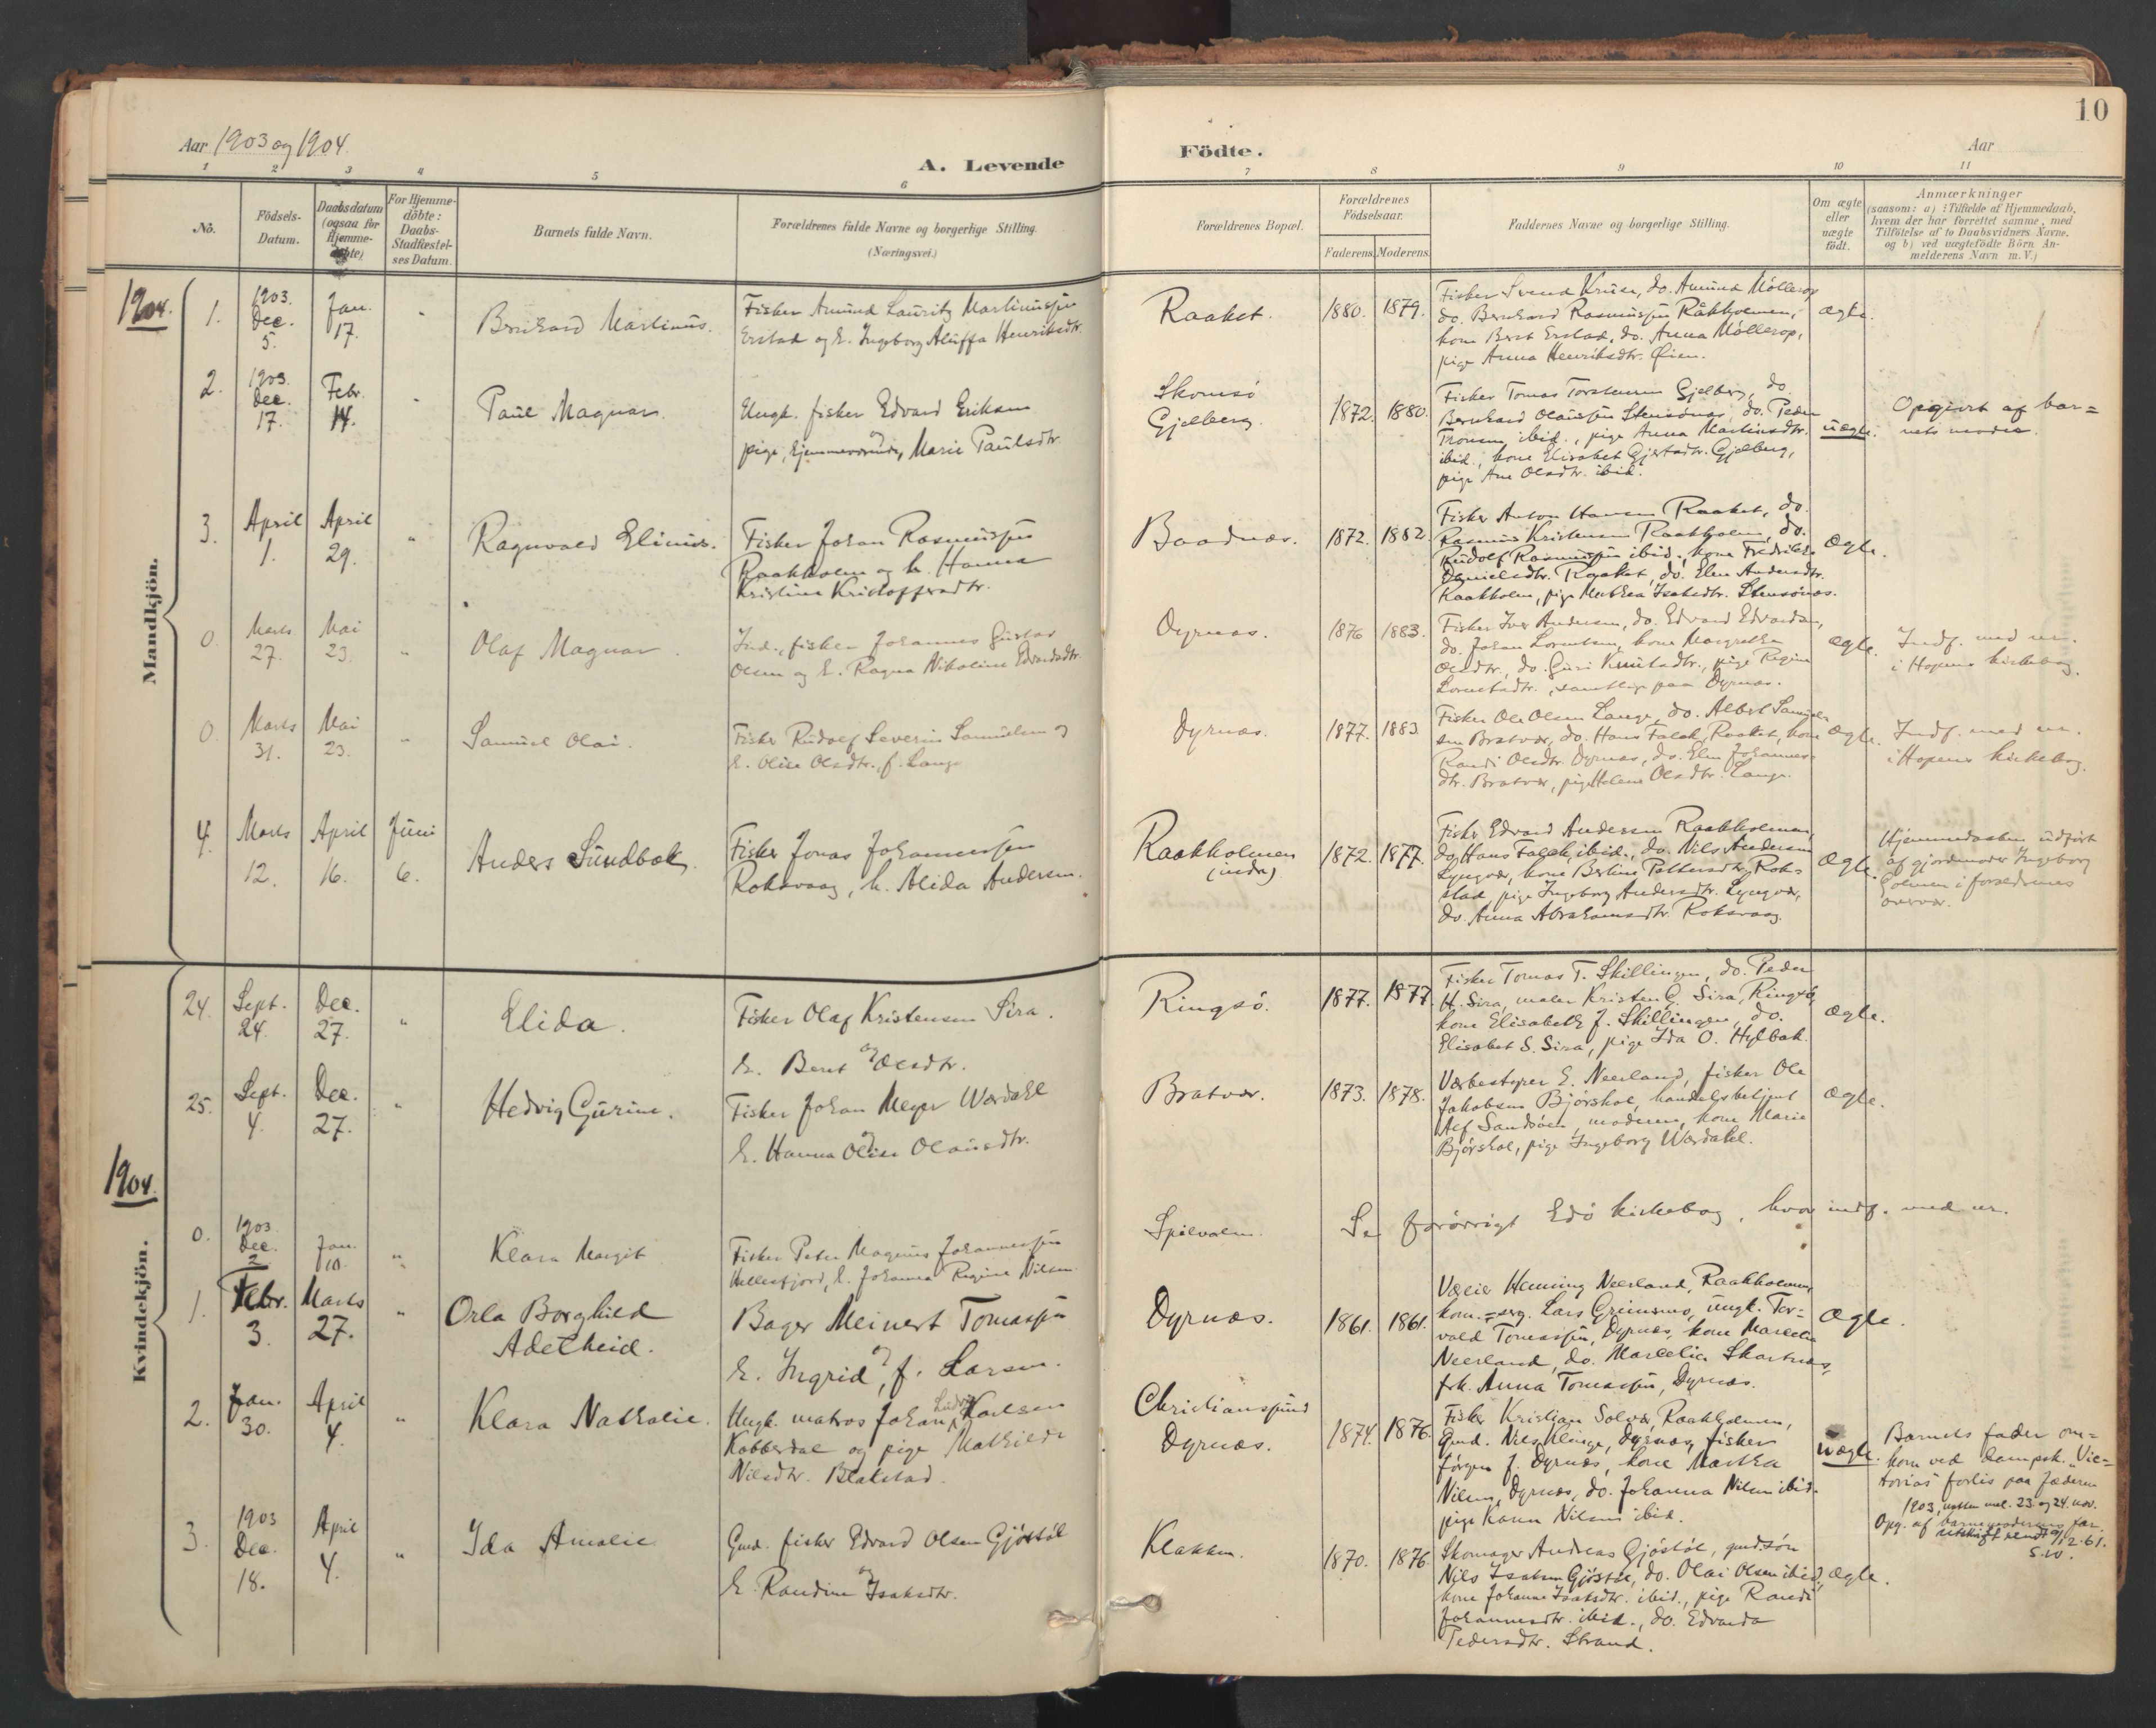 10
Aar 1903 og 1904.
A. Levende Födte.
Aar
1 2 3 4 5 6 7 8 9 10 11
No.
Födsels-Datum.
Daabsdatum (ogsaa for Hjemmedöbte)
For Hjemmedöbte: Daabs-Stadfæstelses Datum.
Barnets fulde Navn.
Forældrenes fulde Navne og borgerlige Stilling.
(Næringsvei.)
Forældrenes Bopæl.
Forældrenes Födselsaar.
Faderens. Moderens.
Faddernes Navne og borgerlige Stilling.
Om ægte eller uægte födt.
Anmærkninger
(saasom: a) i Tilfælde af Hjemmedaab,
hvem der har forrettet samme, med
Tilföielse af to Daabsvidners Navne.
og b) ved uægtefödte Börn An-
melderens Navn m. V.)
Mandkjön.
1904.
1.
1903. Dec. 5.
Jan. 17.
Bernhard Martinus.
Fisker Amund Lauritz Martinussen
Erstad og h. Ingeborg Aluffa Henriksdtr.
Raaket.
1880. 1879.
Fisker Svend Kruse, do. Amund Möllerop
do. Bernhard Rasmussen Råkholmen,
kone Berit Erstad, do. Anna Möllerop,
pige Anna Henriksdtr. Øien.
ægte.
2.
1903. Dec. 17.
Febr. 14.
Paul Magnar.
Ungk. fisker Edvard Eriksen
og
pige, hjemmeværende, Marie Paulsdtr
Skomsö
Gjelberg
1872. 1880.
Fisker Tomas Torstensen Gjelberg, do
Bernhard Olaussen Stensönes, do. Peder
Tronsen ibid., pige Anna Martinsdtr.
ibid., kone Elisabet Gjertsdtr. Gjelberg,
pige Ane Olsdtr. ibid.
uægte.
Opgivet af bar=
nets moder.
3.
April 1.
April 29.
"
Ragnvald Elinus.
Fisker Johan Rasmussen
Raakholm og h. Hanna
Kristine Kristoffersdtr.
Baadnes.
1872. 1882.
Fisker Anton Hansen Raaket, do.
Rasmus Kristensen Raakholm, do.
Rudolf Rasmussen ibid., kone Fredrikke
Danielsdtr. Raaket, do. Elen Andersdtr.
Raakholm, pige Isaksdtr. Stensönes.
ægte.
0.
Marts 27.
Mai 23.
"
Olaf Magnar.
Ind., fisker Johannes Gustav
Olsen og h. Ragna Nikoline Edvardsdtr.
Dyrnes.
1876 1883.
Fisker Iver Andersen, do. Edvard Edvardsen,
do. Johan Lorentsen, kone Margrethe
Olsdtr., do. Guri Knutsdtr., pige Regine
Lorntsdtr., samtlige paa Dyrnes.
ægte.
Indf. med nr.
i Hopens kirkebog.
0.
Marts 31.
Mai 23.
"
Samuel Olai.
Fisker Rudolf Severin Samuelsen og
h. Olise Olsdtr., f. Lange
Dyrnes.
1877. 1883.
Fisker Ole Olsen Lange, do. Albert Samuel-
sen Bratvær, do. Hans Falck, Raaket, kone
Randi Olsdtr. Dyrnes, do. Elen Johannes-
dtr. Bratvær, pige Helene Olsdtr. Lange.
ægte.
Indf. med nr.
i Hopens kirkebog.
4.
Marts 12.
April 16.
Juni 6.
Anders Sundbak.
Fisker Jonas Johannessen
Roksvaag, h. Alida Andersen.
Raakholmen
(indre)
1872. 1877.
Fisker Edvard Andersen Raakholmen,
do. Hans Falch, ibid., do. Nils Andersen
Lyngvær, kone Berline Pettersdtr. Rok-
stad, pige Ingeborg Andersdtr. Lyngvær,
do. Anna Abrahamsdtr. Roksvaag.
ægte.
Hjemmedaaben udført
af gjordmoder Ingeborg
Holmen i forældrenes
overvær.
Kvindekjön.
24.
Sept. 24.
Dec. 27.
"
Elida.
Fisker Olaf Kristensen Sira.
og
h. Beret Olsdtr.
Ringsö.
1877. 1877.
Fisker Tomas T. Skillingen, do. Peder
H. Sira, maler Kristen E. Sira, Ringsö,
kone Elisabeth J. Skillingen, do.
Elisabet S. Sira, pige Ida O. Hylbak.
ægte.
25.
Sept. 4.
Dec. 27.
"
Hedvig Gurine.
Fisker Johan Meyer Werdahl
og
h. Hanna Olise Olausdtr.
Bratvær.
1873. 1878.
Værbestyrer E. Neerland, fisker Ole
Jakobsen Bjørshol, handelsbetjent
Alf Sandsöen, moderen, kone Marie
Bjørshol, pige Ingeborg Werdahl.
ægte.
1904.
0.
1903 Dec. 2
Jan. 10.
"
Klara Margit
Fisker Peter Magnus Johannessen
Hellesfjord, h. Johanna Regine Nilsen
Spilvolm.
Se forøvrigt Edö kirkebog, hvor indf. med nr.
1.
Febr. 3.
Marts 27.
"
Orla Borghild
Adelheid.
Bager Meinert Tomassen
og
h. Ingrid, f. Larsen.
Dyrnes.
1861. 1861.
Væeier Henning Neerland, Raakholmen,
kom.=serg. Lars Grimsmo, ungk. Tor=
vald Tomassen, Dyrnes, kone Marcelie
Neerland, do. Marcelie Skartnes,
frk. Anna Tomassen, Dyrnes.
ægte.
2.
Jan. 30.
April 4.
"
Klara Nathalie.
Ungk. matros Johan Ludvig Karlsen
Kobberdal og pige Mathilde
Nilsdtr. Blakstad.
Christianssund
Dyrnes.
1874. 1876.
Fisker Kristjan Solvær, Raakholmen,
Gmd. Nils Klinge, Dyrnes, fisker
Jørgen J. Dyrnes, kone Martha
Nilsen, Dyrnes, do. Johanna Nilsen ibid.
pige Karen Nilsen ibid.
uægte.
Barnets fader om=
kom ved dampsk. „Vic=
torias" forlis paa fæderen
1903, natten mel. 23 og 24. nov.
Opg. af barnemoderens far.
utskrift sendt 9/2-61.
S.W.
3.
1903 Dec. 18.
April 4.
"
Ida Amalie
Gmd. fisker Edvard Olsen Gjöstöl
og
h. Randine Isaksdtr.
Klakken.
1870. 1876.
Skomager Andreas Gjöstöl, gmd. søn
Nils Isaksen Gjöstöl, do. Olai Olsen ibid,
kone Johanne Isaksdtr. ibid., pige Randi
Johannesdtr. ibid., do. Edvarda
Pedersdtr. Strand.
ægte.